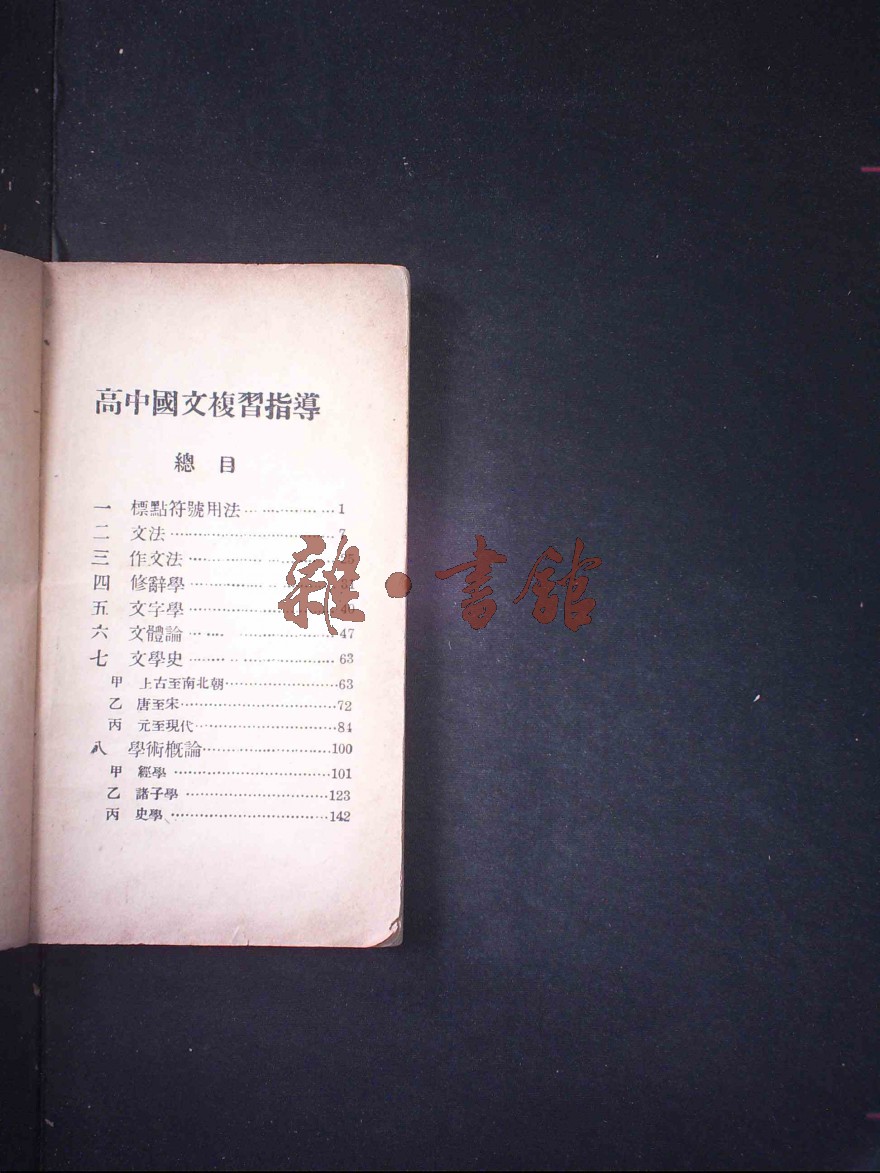 高中國文複習指導
總 目
一 標點符號用法 1
二 文法 7
三 作文法
四 修辭學
五 文字學 40
六 文體論 47
七 文學史 63
甲 上古至南北朝 63
乙 唐至宋 72
丙 元至現代 84
八 學術概論 100
甲 經學 101
乙 諸子學 123
丙 史學 142
雜·書館